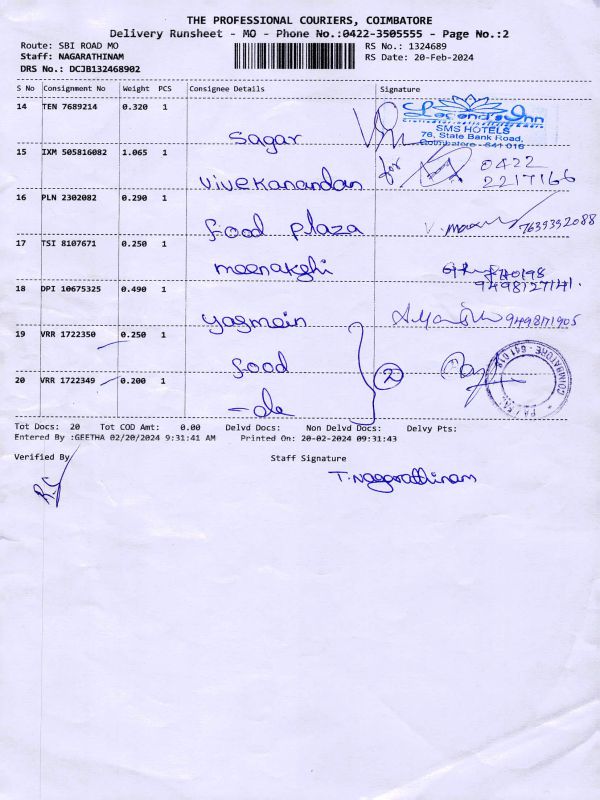 THE PROFESSIONAL COURIERS, COIMBATORE
Delivery Runsheet - MO - Phone No.:0422-3505555 - Page No.:2
Route: SBI ROAD MO
RS No.: 1324689
Staff: NAGARATHINAM
RS Date: 20-Feb-2024
DRS No.: DCJB132468902
S No Consignment No Weight PCS Consignee Details Signature
14 TEN 7689214 0.320 1 Sagar
SMS HOTELS
76, State Bank Road,
Coimbatore - 641 018
15 IXM 505816082 1.065 1 Vivekanandan for 0422
2217166
16 PLN 2302082 0.290 1 food plaza 7639392088
17 TSI 8107671 0.250 1 meenakshi
9498127141.
18 DPI 10675325 0.490 1 yasmein 9498171905
19 VRR 1722350 0.250 1 food
2
20 VRR 1722349 0.200 1 -do
Tot Docs: 20 Tot COD Amt: 0.00 Delvd Docs: Non Delvd Docs: Delvy Pts:
Entered By :GEETHA 02/20/2024 9:31:41 AM Printed On: 20-02-2024 09:31:43
Verified By Staff Signature
T. Nagarathinam